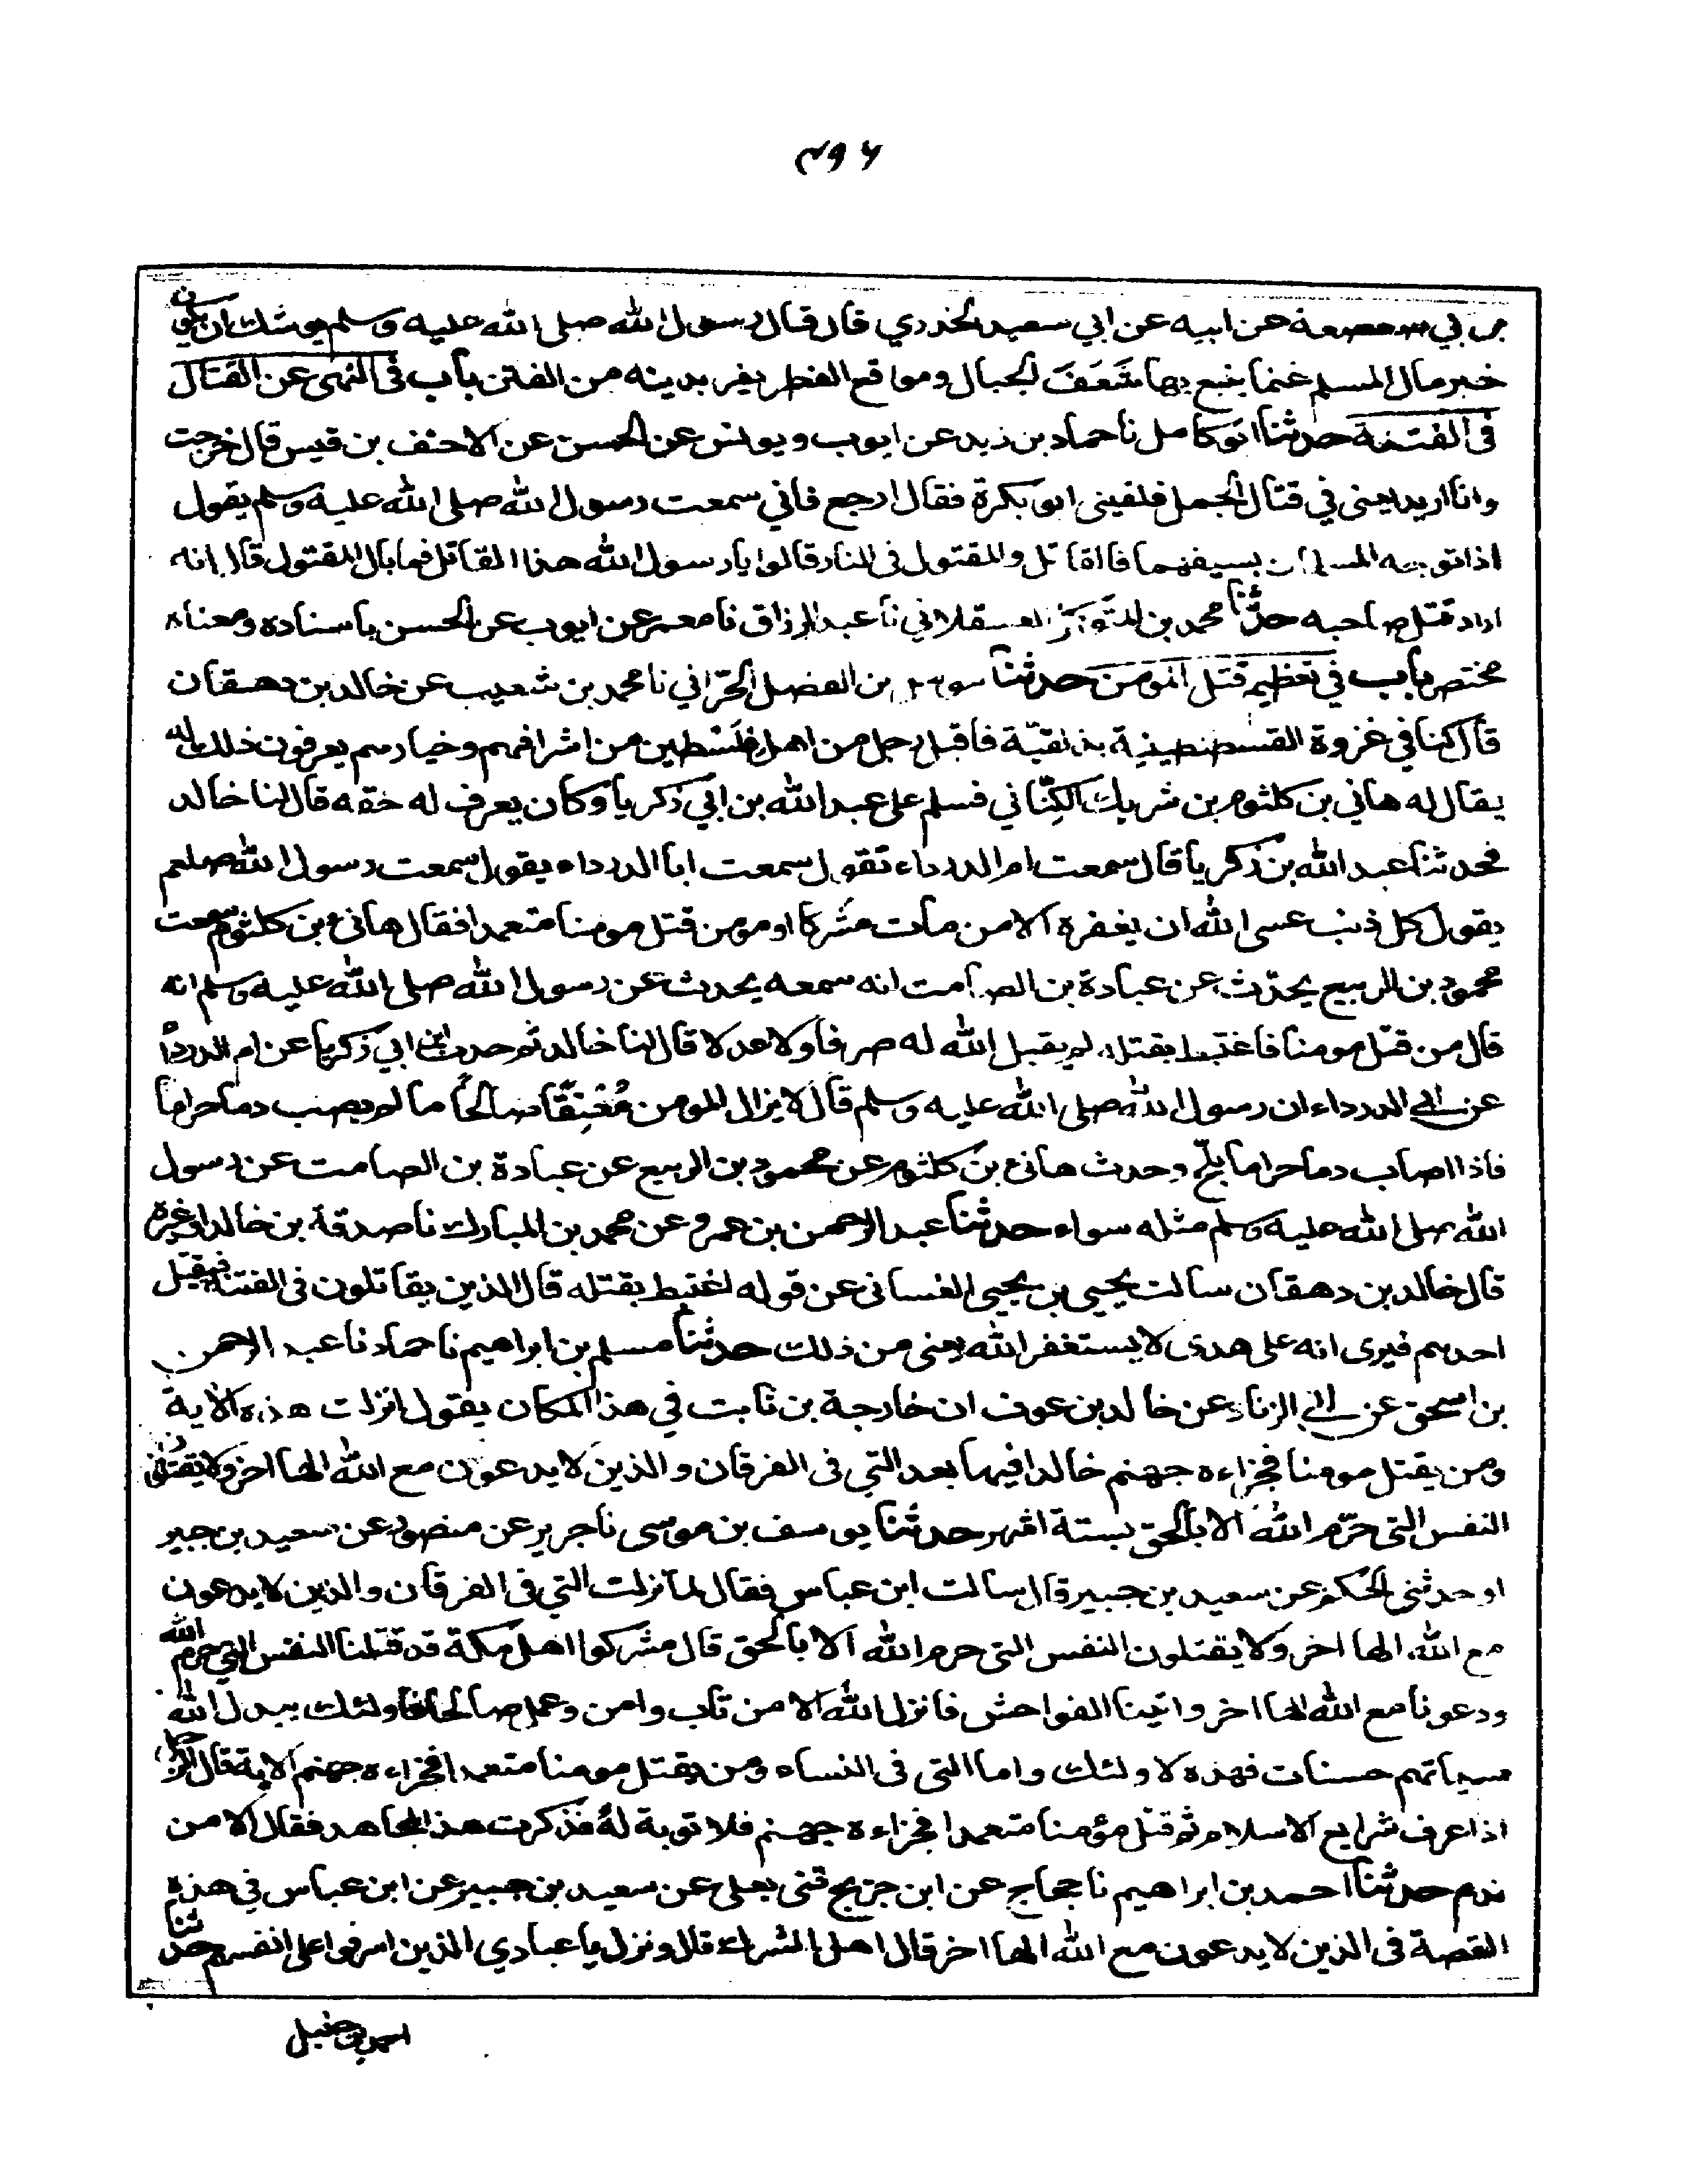 ٤٩٦
بن بي صعصعة عن ابيه عن ابي سعيد الخدري قال قال رسول الله صلى الله عليه وسلم يوشك ان يكون
خير مال المسلم غنما يتبع بها شَعَفَ الجبال ومواقع القطر يفر بدينه من الفتن باب في النهى عن القتال
فى الفتنة حدثنا ابو كامل نا حماد بن زيد عن ايوب ويونس عن الحسن عن الاحنف بن قيس قال خرجت
وانا اريد يعنى في قتال الجمل فلقينى ابو بكرة فقال ارجع فاني سمعت رسول الله صلى الله عليه وسلم يقول
اذا توجه المسلمان بسيفهما فالقاتل والمقتول فى النار قالوا يا رسول الله هذا القاتل فما بال المقتول قال انه
اراد قتل صاحبه حدثنا محمد بن المتوكل العسقلاني نا عبد الرزاق نا معمر عن ايوب عن الحسن باسناده ومعناه
مختصر باب في تعظيم قتل المومن حدثنا مومل بن الفضل الحرّاني نا محمد بن شعيب عن خالد بن دهقان
قال كنا في غزوة القسطنطينية بذلقيّة فاقبل رجل من اهل فلسطين من اشرافهم وخيارهم يعرفون ذلك له
يقال له هاني بن كلثوم بن شريك الكِنّاني فسلم على عبد الله بن ابي زكريا وكان يعرف له حقه قال لنا خالد
فحدثنا عبد الله بن زكريا قال سمعت ام الدرداء تقول سمعت ابا الدرداء يقول سمعت رسول الله صلعم
يقول كل ذنب عسى الله ان يغفره الا من مات مشركا او مومن قتل مومنا متعمدا فقال هانئ بن كلثوم سمعت
محمود بن الربيع يحدّث عن عبادة بن الصامت انه سمعه يحدث عن رسول الله صلى الله عليه وسلم انه
قال من قتل مومنا فاغتبط بقتله لم يقبل الله له صرفا ولا عدلا قال لنا خالد ثم حدث ابن ابي زكريا عن ام الدرداء
عن ابي الدرداء ان رسول الله صلى الله عليه وسلم قال لا يزال المومن مُعْنِقًا صالحًا ما لم يصب دما حراما
فاذا اصاب دما حراما بلّح وحدث هانئ بن كلثوم عن محمود بن الربيع عن عبادة بن الصامت عن رسول
الله صلى الله عليه وسلم مثله سواء حدثنا عبد الرحمن بن عمرو عن محمد بن المبارك نا صدقة بن خالد او غيره
قال خالد بن دهقان سالت يحيى بن يحيى الغسانى عن قوله اغتبط بقتله قال الذين يقاتلون فى الفتنة فيقتل
احدهم فيرى انه على هدى لا يستغفر الله يعنى من ذلك حدثنا مسلم بن ابراهيم نا حماد نا عبد الرحمن
بن اسحق عن ابي الزناد عن خالد بن عوف ان خارجة بن ثابت في هذا المكان يقول انزلت هذه الاية
ومن يقتل مومنا فجزاءه جهنم خالدا فيها بعد التي فى الفرقان والذين لا يدعون مع الله الها اخر ولا يقتلون
النفس التى حرّم الله الا بالحق بستة اشهر حدثنا يوسف بن موسى نا جرير عن منصور عن سعيد بن جبير
او حدثنى الحكم عن سعيد بن جبير قال سالت ابن عباس فقال لما نزلت التي فى الفرقان والذين لا يدعون
مع الله الها اخر ولا يقتلون النفس التى حرم الله الا بالحق قال مشركوا اهل مكة قد قتلنا النفس التي حرم الله
ودعونا مع الله الها اخر واتينا الفواحش فانزل الله الا من تاب وامن وعمل صالحا فاولئك يبدل الله
سياتهم حسنات فهذه لاولئك واما التى فى النساء ومن يقتل مومنا متعمدا فجزاءه جهنم الاية قال الرجل
اذا عرف شرايع الاسلام ثم قتل مؤمنا متعمدا فجزاءه جهنم فلا توبة له فذكرت هذا لمجاهد فقال الا من
ندم حدثنا احمد بن ابراهيم نا حجاج عن ابن جريج ثنى يعلى عن سعيد بن جبير عن ابن عباس في هذه
القصة فى الذين لا يدعون مع الله الها اخر قال اهل الشرك قال ونزل يا عبادي الذين اسرفوا على انفسهم حدثنا
احمد بن حنبل